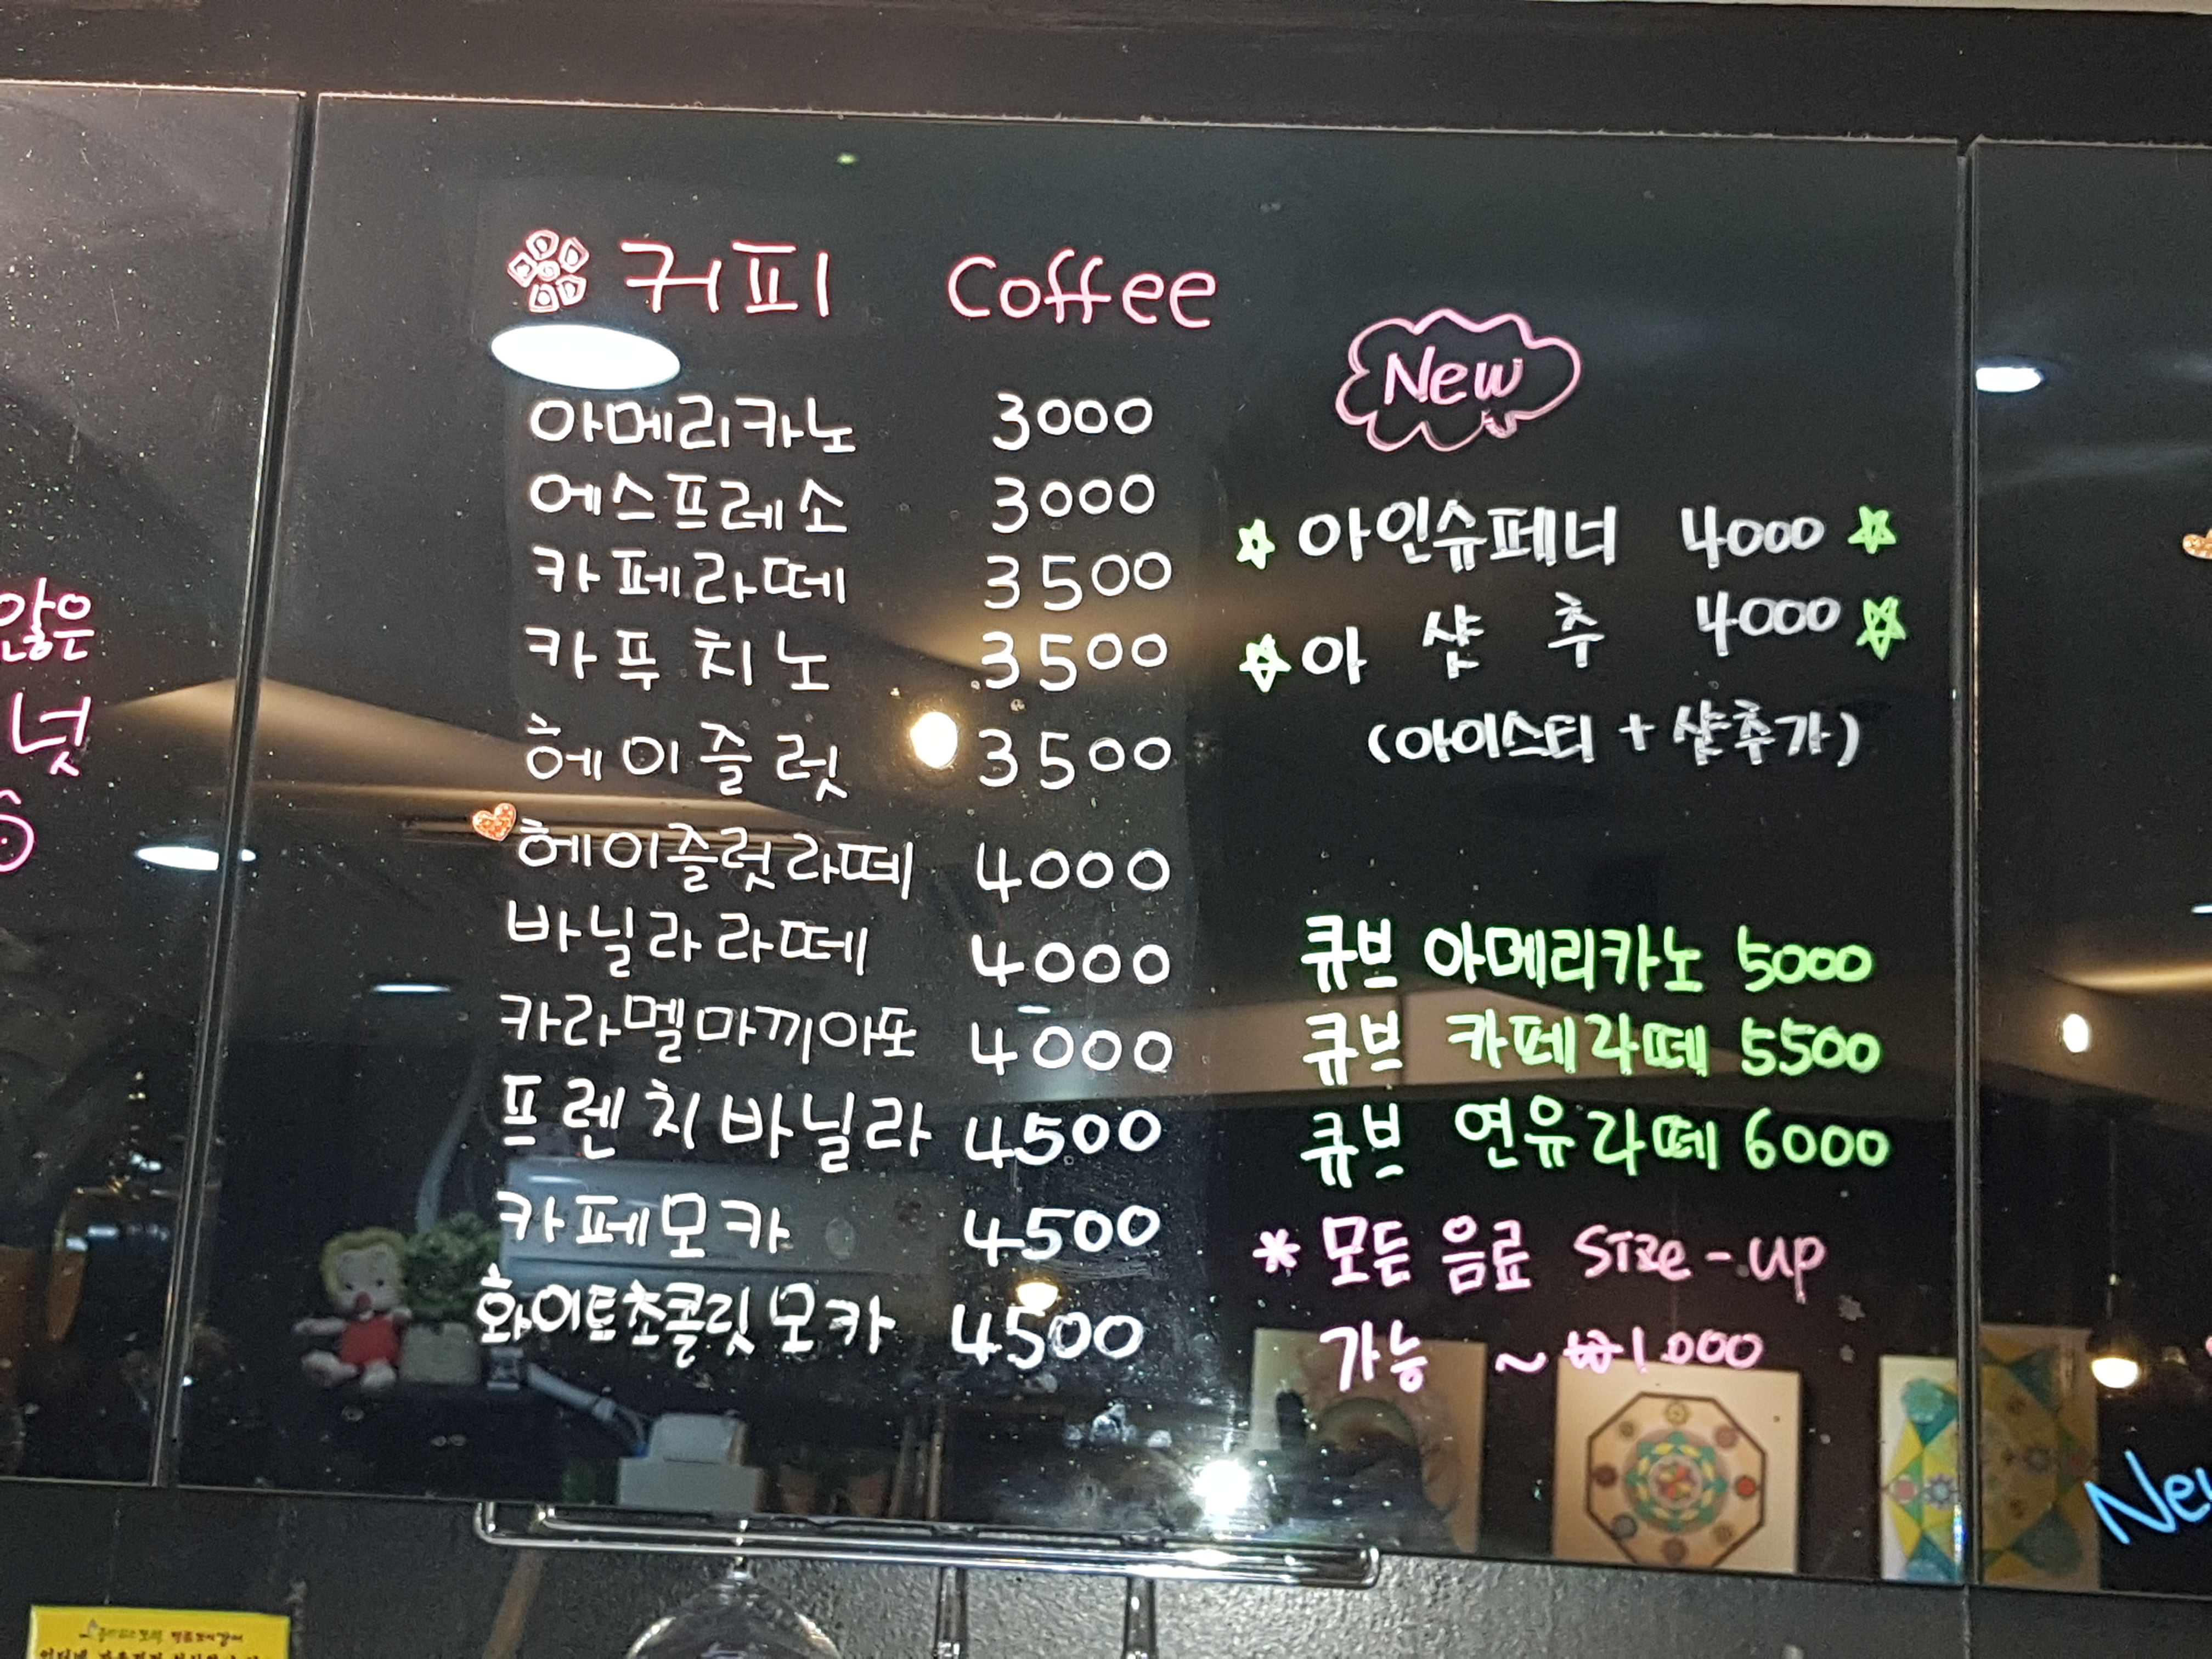 않은
넛
커피 Coffee
아메리카노 3000
에스프레소 3000
카페라떼 3500
카푸치노 3500
헤이즐럿 3500
헤이즐럿라떼 4000
바닐라라떼 4000
카라멜마끼아또 4000
프렌치바닐라 4500
카페모카 4500
화이트초콜릿모카 4500
New
아인슈페너 4000
아 샷 추 4000
(아이스티 + 샷추가)
큐브 아메리카노 5000
큐브 카페라떼 5500
큐브 연유라떼 6000
* 모든 음료 Size-up
가능 ~ ₩1,000